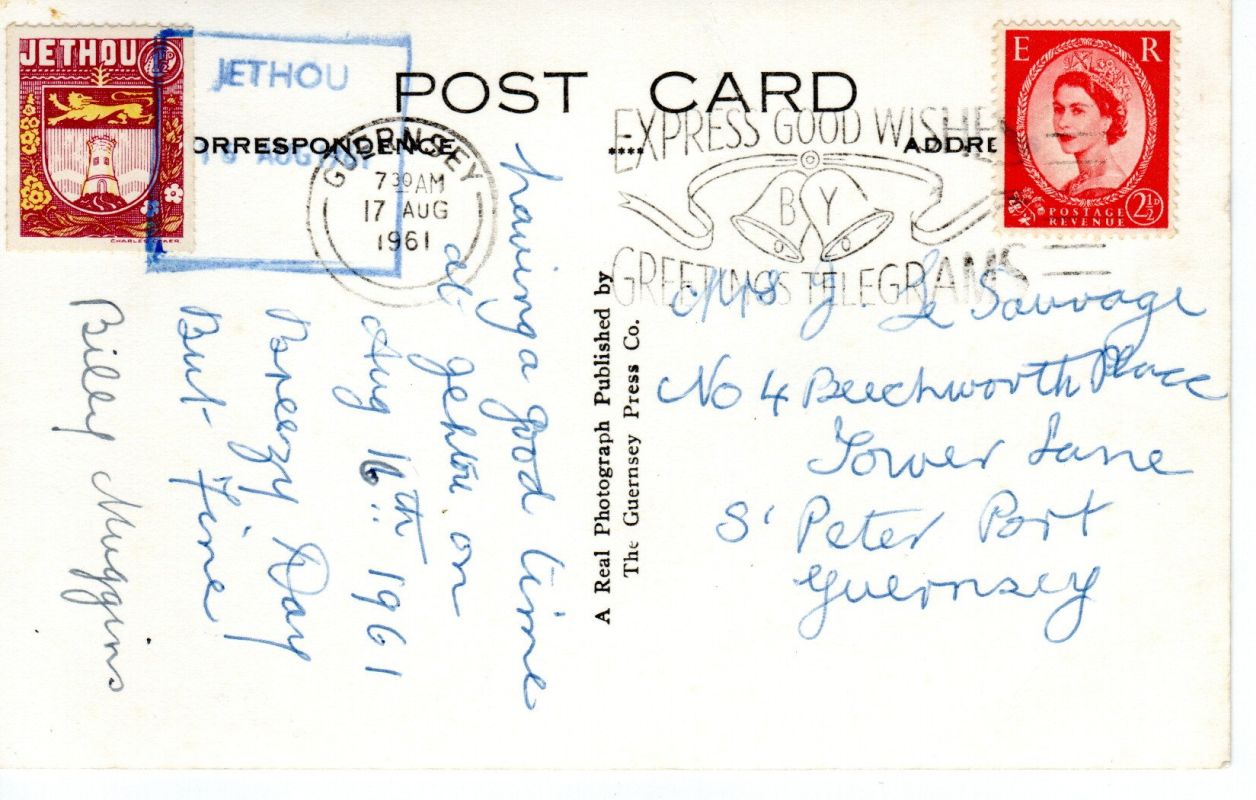 JETHOU
1½D
CHARLES COKER
JETHOU
AUG
POST CARD
ORRESPONDENCE
ADDRE
GUERNSEY
7 30 AM
17 AUG
1961
EXPRESS GOOD WISHES
BY
GREETINGS TELEGRAMS
E R
POSTAGE
REVENUE
2½D
having a good time
at Jehtou on
Aug 16th 1961
Breezy Day
But Fine
Billy Muggins
A Real Photograph Published by
The Guernsey Press Co.
Mrs J. Le Sauvage
No 4 Beechworth Place
Tower Lane
St Peter Port
Guernsey